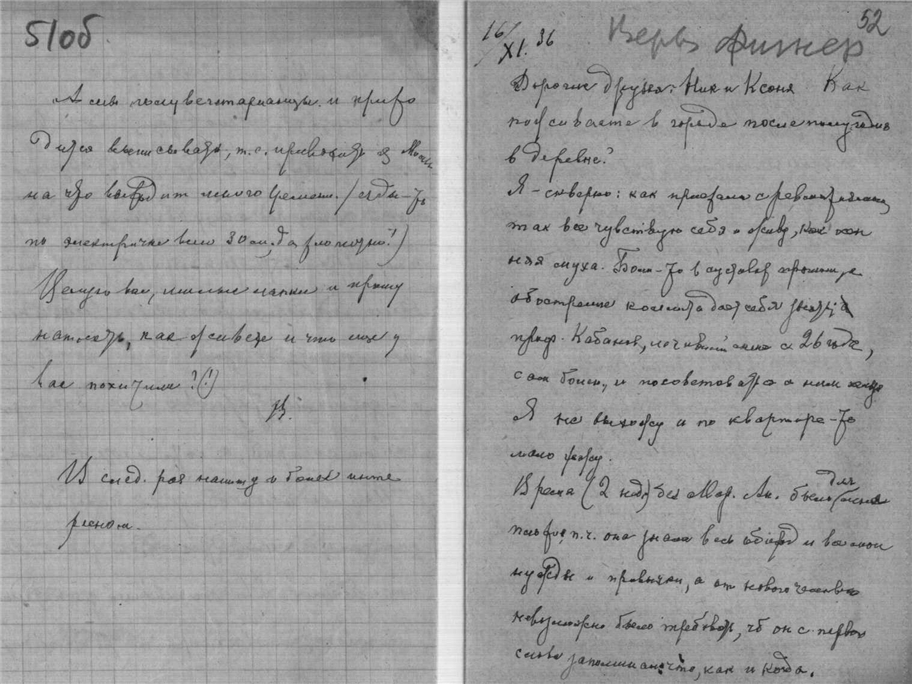 51об
А мы полувегетарианцы и прихо
дится выписывать, т.е. привозить из Москвы
на что выходит много времени. (езды-то
по электричке всего 30 м., да
Целую вас, милые мои и прошу
написать, как живете и что еще у
вас похитили?(!)
В.
В след. раз напишу о более инте
ресном.
52
16/XI. 36
Вера Фигнер
Дорогие друзья: Ник и Ксеня Как
поживаете в городе после полугода
в деревне?
Я - скверно: как приехали с
так все чувствую себя и живу, как сон
ная муха. Боль-то в суставах
обострение колита дает себя знать, а
проф. Кабанов, лечивший меня с 26 года,
сам болен, и посоветоваться с ним
Я не выхожу и по квартире-то
мало хожу.
Время (2 нед.) без Мар. Ан. было для меня
плохо, п.ч. она знала весь обиход и все мои
нужды и привычки, а от нового человека
невозможно было требовать, чтоб он с первого
слова запоминал что, как и когда.